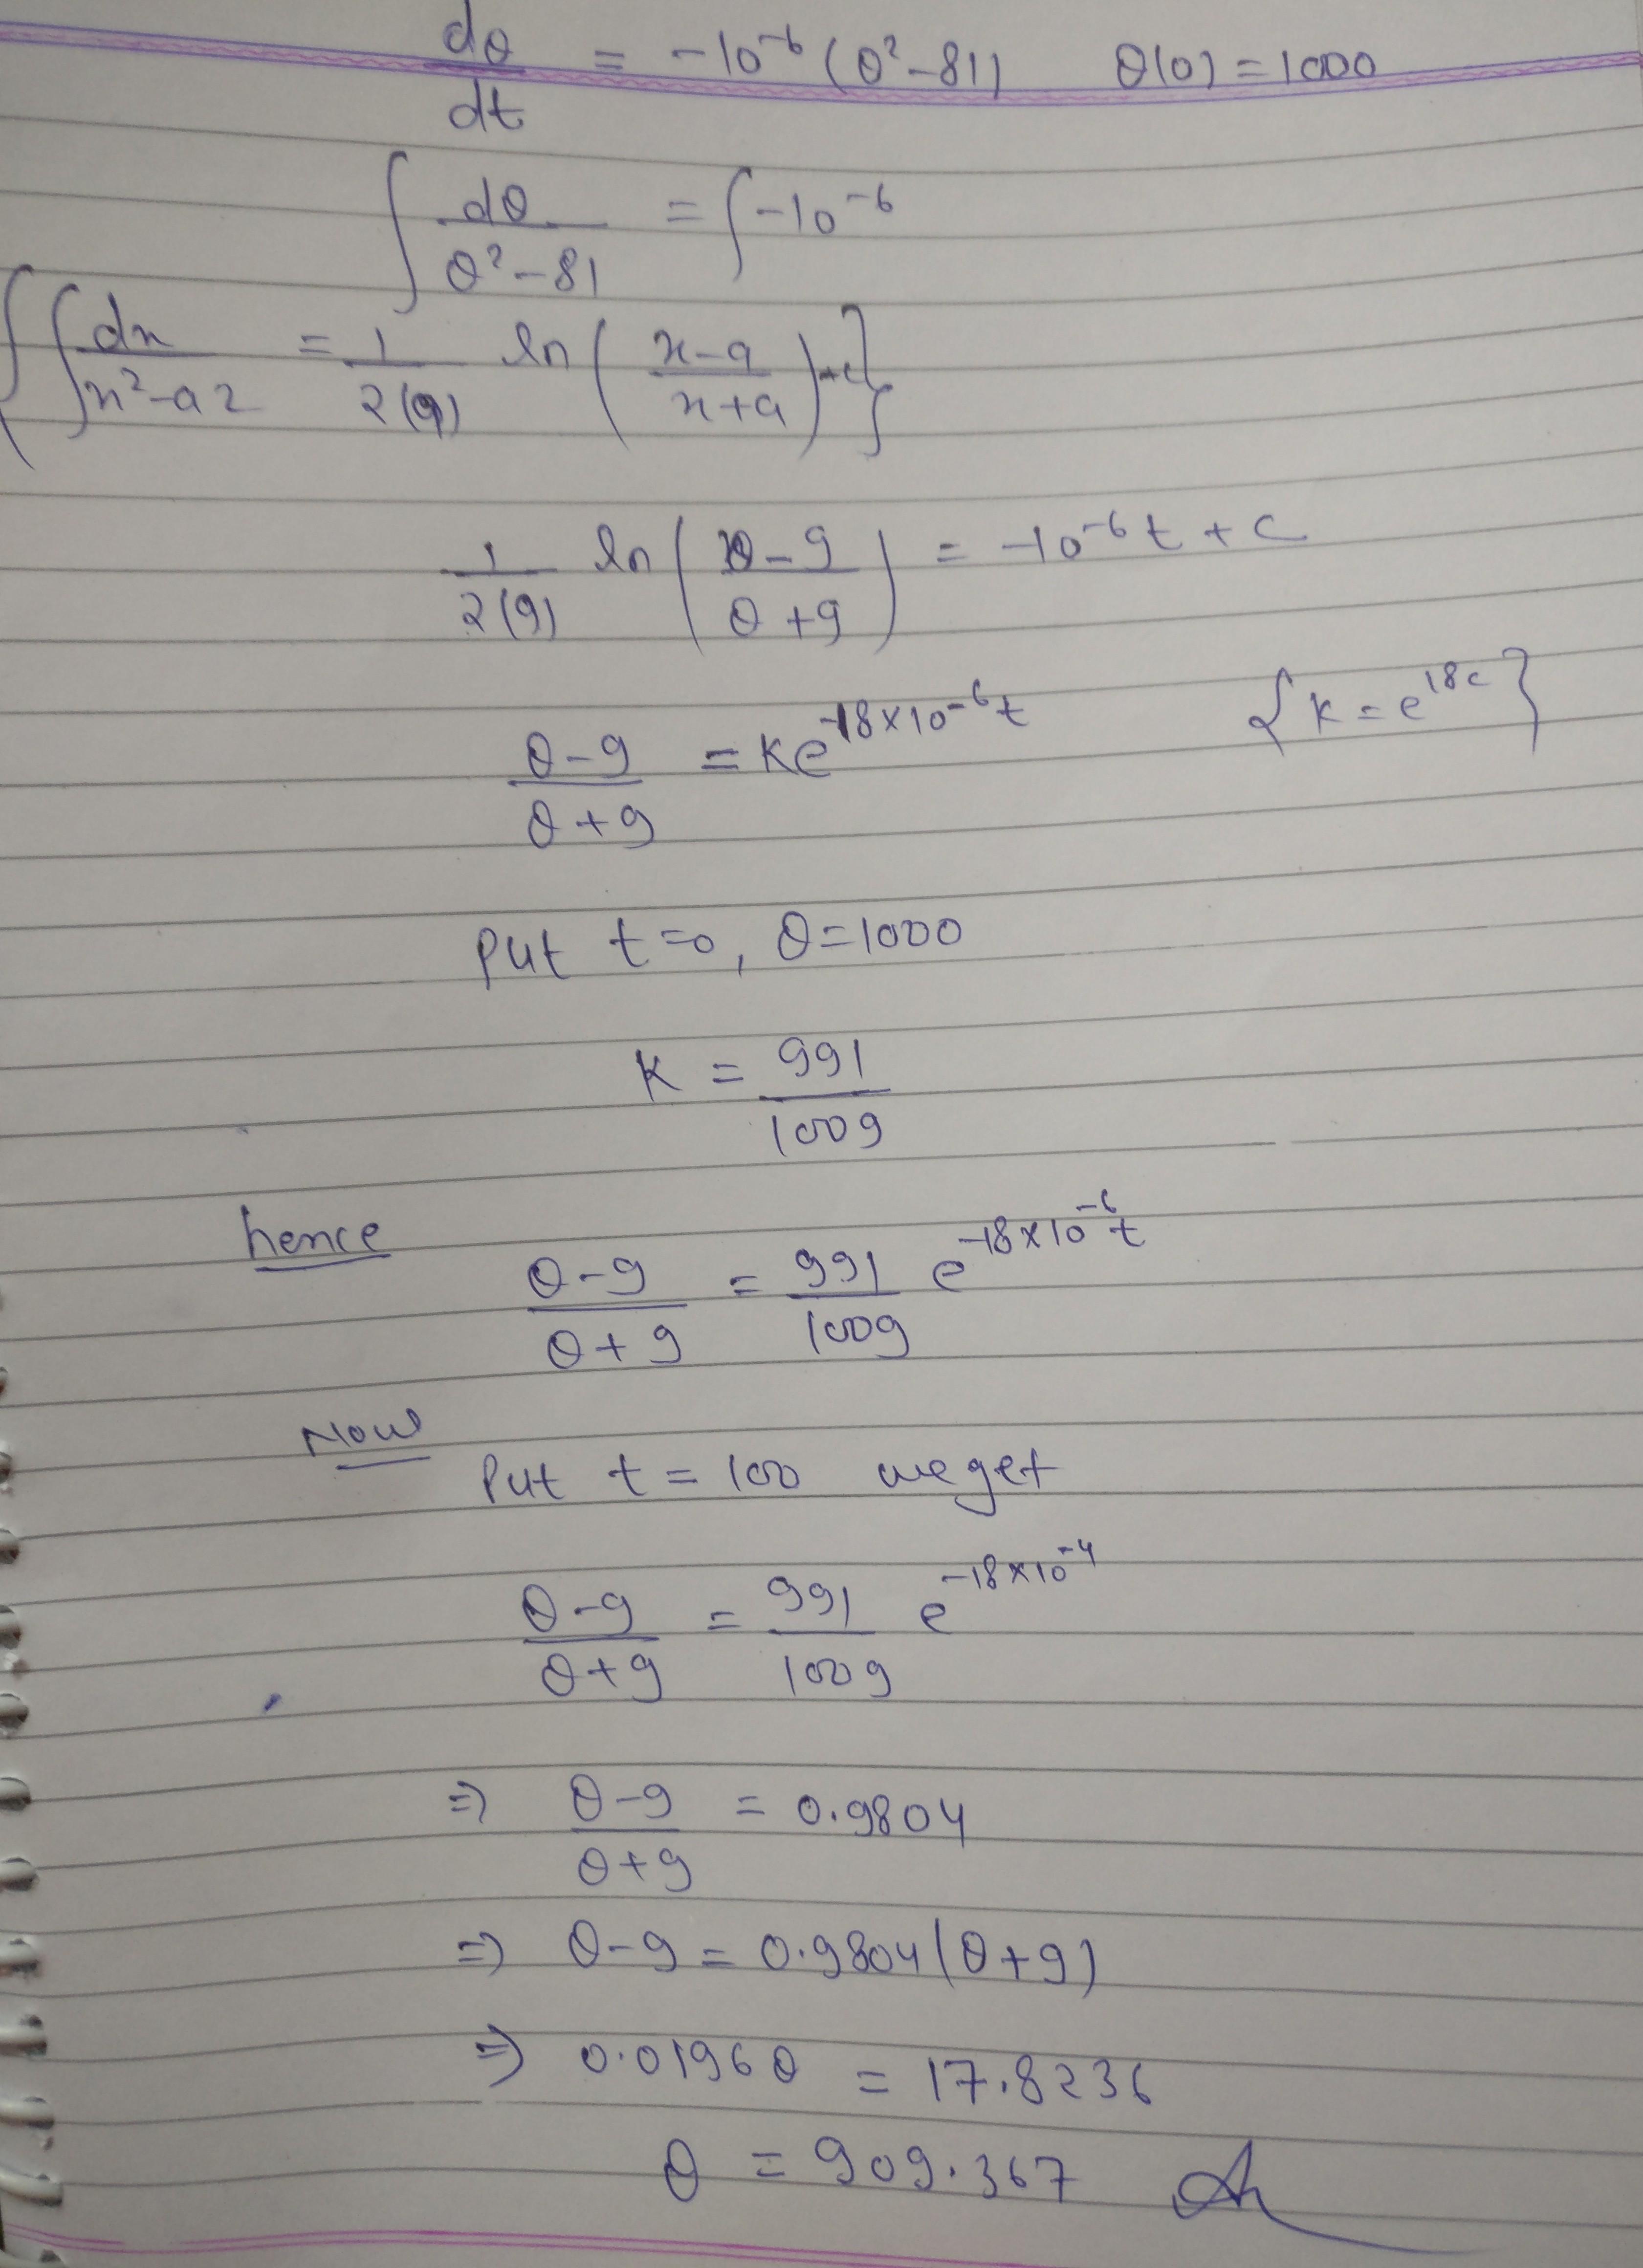 dθ/dt = -10⁻⁶ (θ²-81) θ(0) = 1000
∫ dθ/(θ²-81) = ∫ -10⁻⁶
{ ∫ dx/(x²-a2) = 1/2(a) ln ( (x-a)/(x+a) ) + c }
1/2(9) ln ( (θ-9)/(θ+9) ) = -10⁻⁶t + c
(θ-9)/(θ+9) = Ke^(-18×10⁻⁶t) { K = e^(18c) }
Put t=0, θ=1000
K = 991/1009
hence
(θ-9)/(θ+9) = 991/1009 e^(-18×10⁻⁶t)
Now
Put t = 100 we get
(θ-9)/(θ+9) = 991/1009 e^(-18×10⁻⁴)
⇒ (θ-9)/(θ+9) = 0.9804
⇒ θ-9 = 0.9804(θ+9)
⇒ 0.0196θ = 17.8236
θ = 909.367